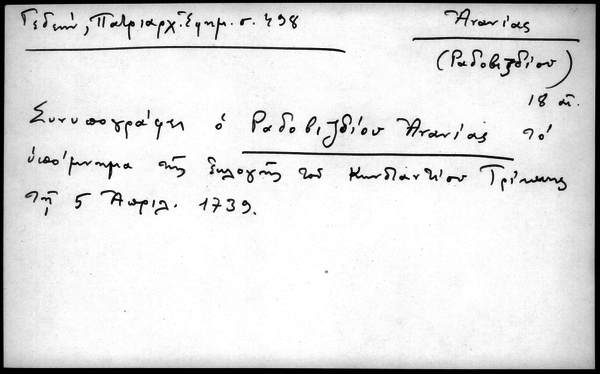 Γεδεών, Πατριαρχ. Εφημ. σ. 498
Ἀνανίας
(Ραδοβιζδίου)
18 αἰ.
Συνυπογράφει ὁ Ραδοβιζδίου Ἀνανίας τό
ὑπόμνημα τῆς ἐκλογῆς τοῦ Κωνσταντίου Τρίκκης
τῇ 5 Ἀπριλ. 1739.